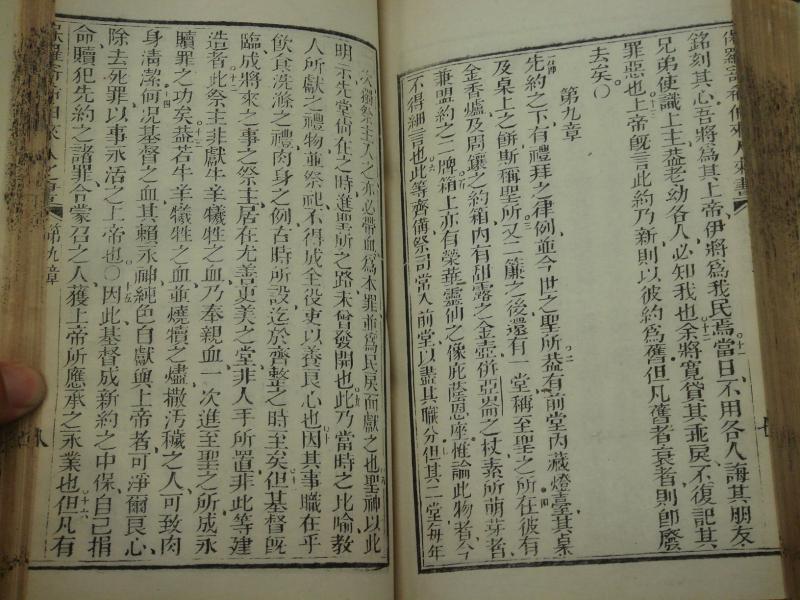 銘刻其心吾將為其上帝伊將為我民焉當日不用各人誨其朋友
兄弟使識上主蓋老幼各人必知我也余將寬貸其乖戾不復記其
罪惡也上帝旣言此約乃新則以彼約為舊但凡舊者衰者則卽廢
去矣○
第九章
先約之下有禮拜之律例並今世之聖所蓋有前堂內藏燈臺其桌
及桌上之餅斯稱聖所又二簾之後還有一堂稱至聖之所在彼有
金香爐及周鑲之約箱內有甜露之金壺併亞崙之杖素所萌芽者
兼盟約之二牌箱上亦有榮華靈仙之像庇蔭恩座惟論此物者今
不得細言也此等齊備祭司常入前堂以盡其職分但其二堂每年
次獨祭主入之亦必帶血為本罪並為民戾而獻之也聖神以此
明示先堂尙在之時進聖所之路未曾發開也此乃當時之比喻教
人所獻之禮物並祭祀不得成全役吏以養良心也因其事職在乎
飮食洗滌之禮肉身之例古時所設迄於齊整之時至矣但基督旣
臨成將來之事之祭主居在尤善更美之堂非人手所置非此等建
造者此祭主非獻牛羊犧牲之血乃奉親血一次進至聖之所成永
贖罪之功矣蓋若牛羊犧牲之血並燒犢之燼撒汚穢之人可致肉
身淸潔何況基督之血其賴永神純色自獻與上帝者可淨爾良心
除去死罪以事永活之上帝也○因此基督成新約之中保自己捐
命贖犯先約之諸罪令蒙召之人獲上帝所應承之永業也但凡有
第九章